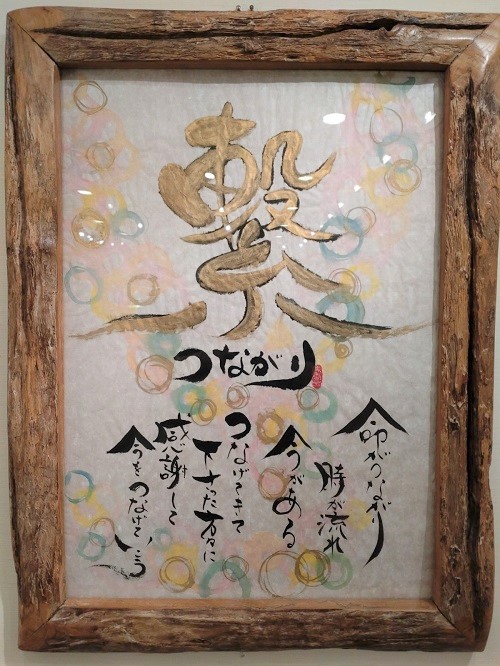 繋
つながり
命がつながり
時が流れ
今がある
つなげてきて
下さった方に
感謝して
今をつなげていこう